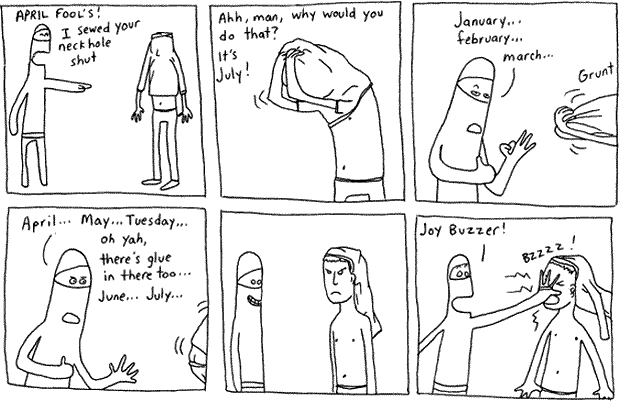 APRIL FOOL'S!
I sewed your
neck hole
shut
Ahh, man, why would you
do that?
It's
July!
January...
february...
march...
Grunt
April... May... Tuesday...
oh yah,
there's glue
in there too...
June... July...
Joy Buzzer!
BZZZZ!